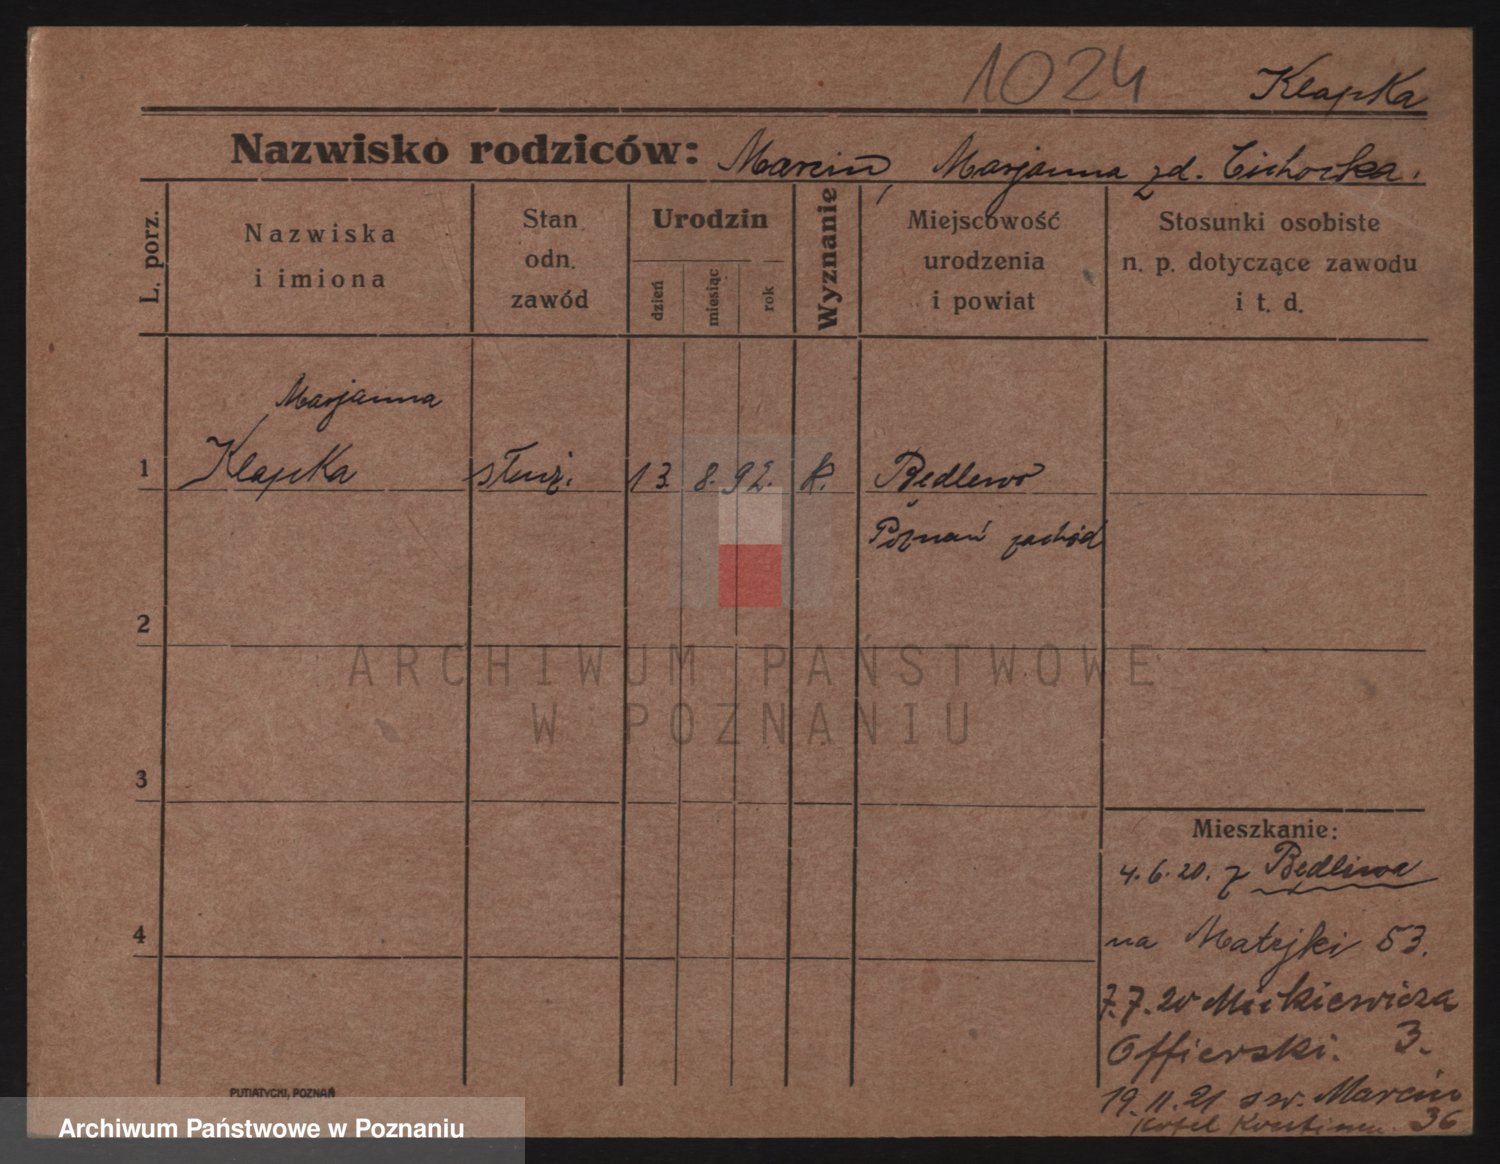 1024
Klapka
Nazwisko rodziców: Marcin Marjanna zd. Cichocka.
L. porz.
Nazwiska
i imiona
Stan
odn.
zawód
Urodzin
dzień
miesiąc
rok
Wyznanie
Miejscowość
urodzenia
i powiat
Stosunki osobiste
n. p. dotyczące zawodu
i t. d.
Marjanna
1 Klapka służ. 13. 8. 92. k. Będlewo
Poznań zachód
2
ARCHIWUM PAŃSTWOWE
W POZNANIU
3
Mieszkanie:
4.6.20. z Będlewa
4
na Matejki 53.
7.7.20 Mickiewicza
3.
19.11.21 św. Marcin
36
PUTIATYCKI, POZNAŃ
Archiwum Państwowe w Poznaniu